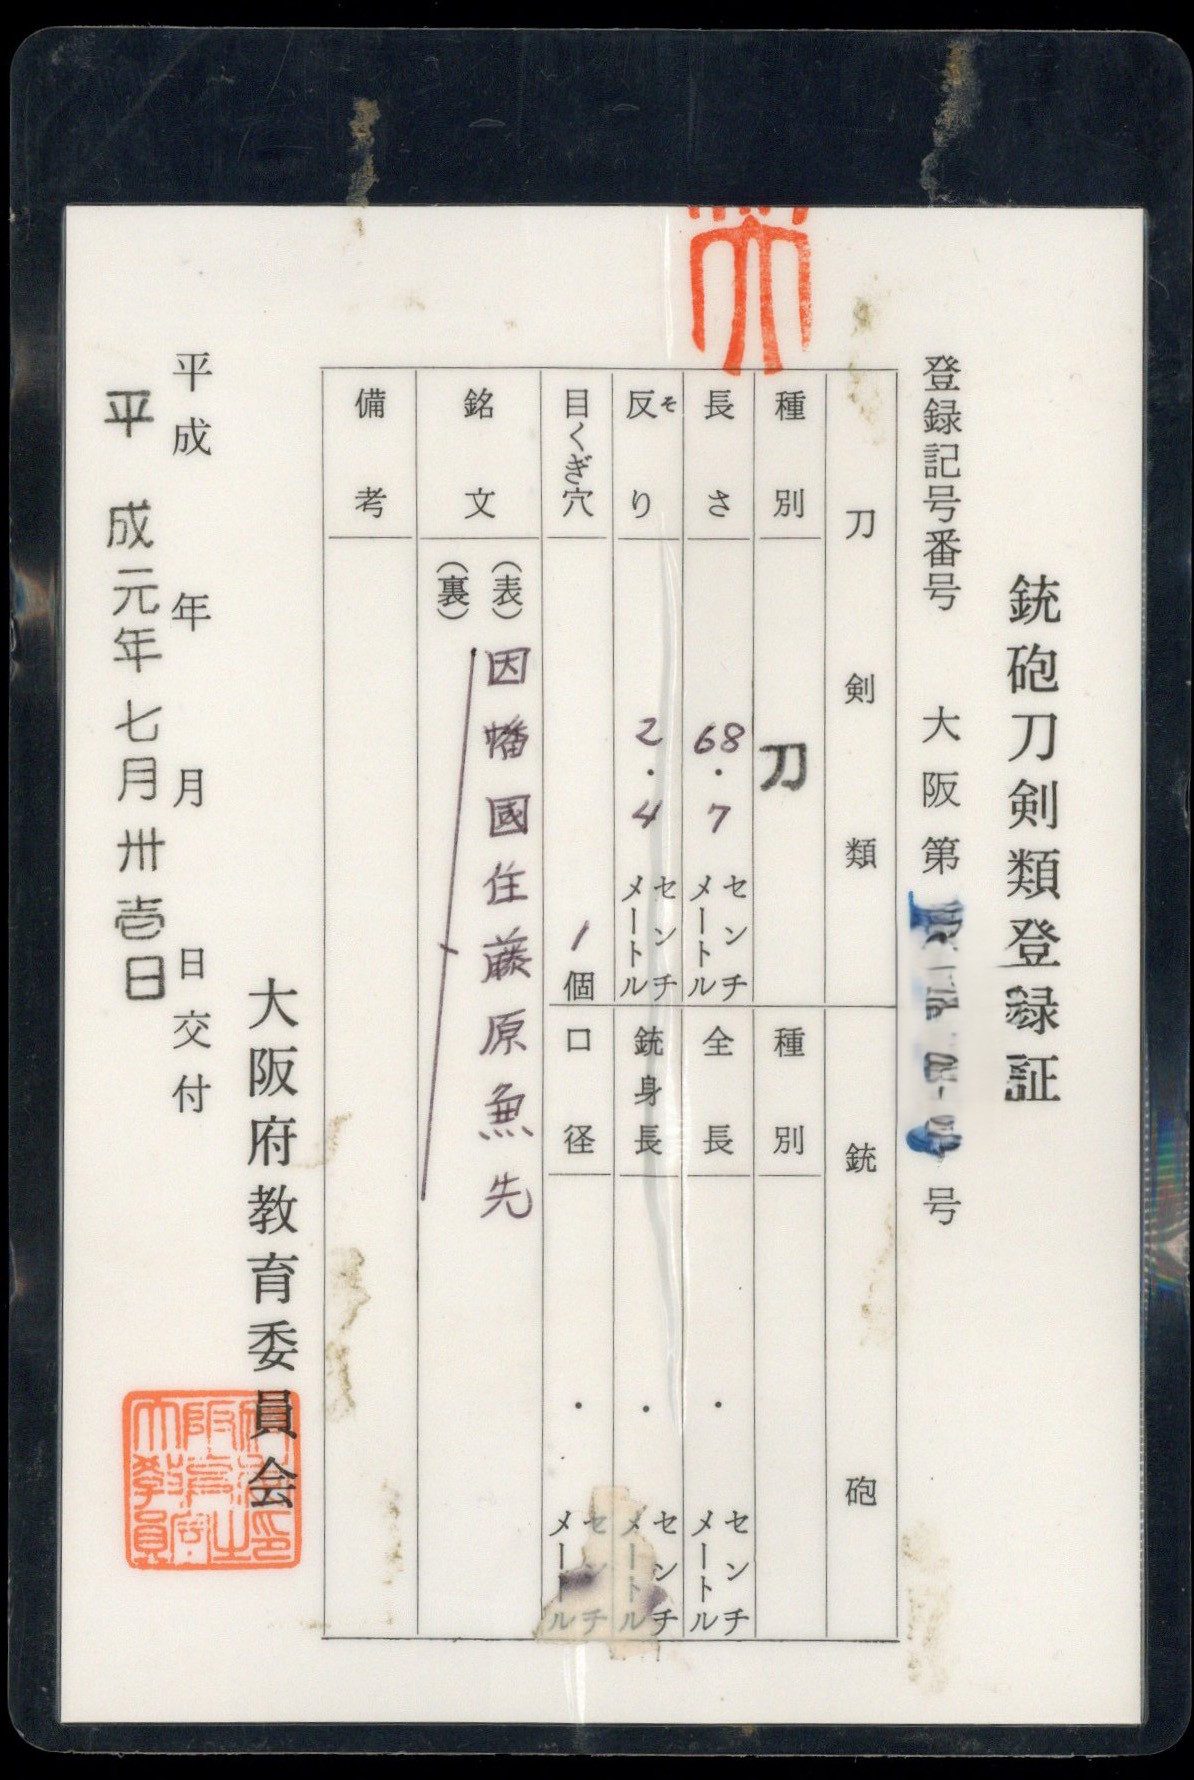 銃砲刀剣類登録証
登録記号番号 大阪第 号
刀剣類
種別 刀
長さ 68.7 センチメートル
反り そ 2.4 センチメートル
目くぎ穴 1個
銘文 (表) 因幡國住藤原兼先
(裏)
備考
銃砲
種別
全長 . センチメートル
銃身長 . センチメートル
口径 . センチメートル
平成 年 月 日交付
平成元年七月卅壱日
大阪府教育委員会